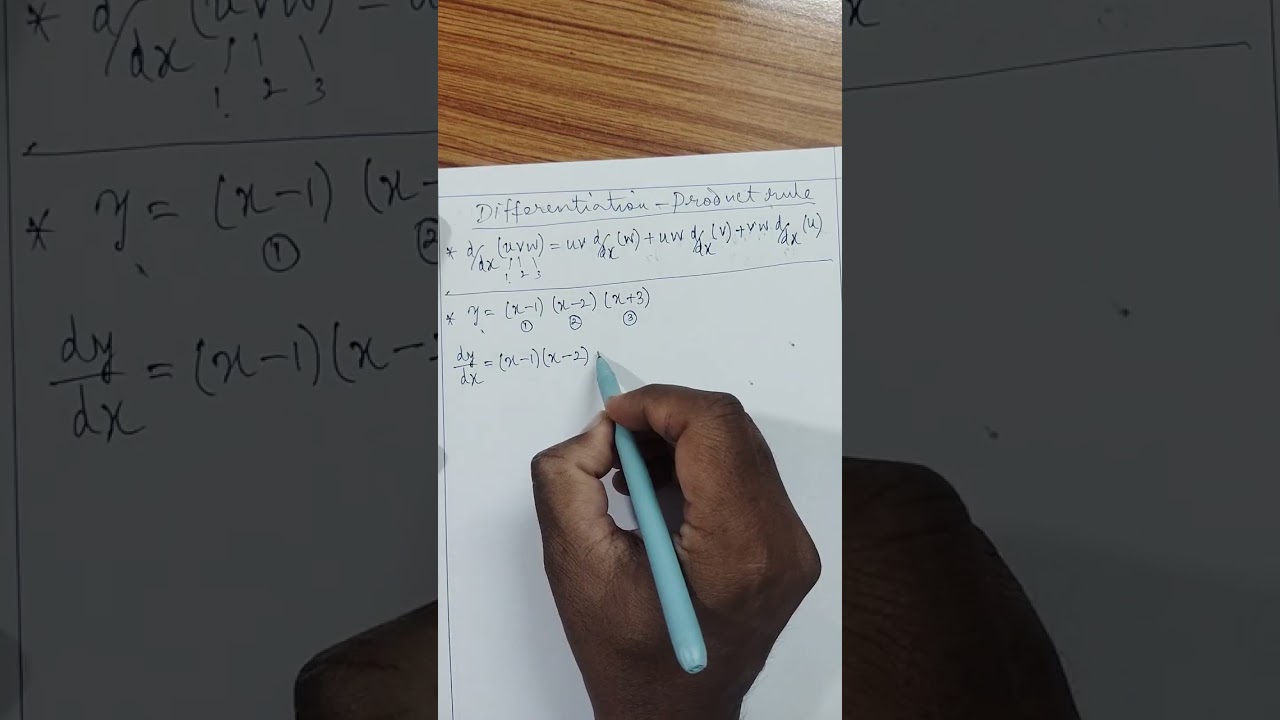 Differentiation - Product rule
* d/dx (uvw) = uv d/dx (w) + uw d/dx (v) + vw d/dx (u)
1 2 3
* y = (x-1) (x-2) (x+3)
① ② ③
dy/dx = (x-1)(x-2)